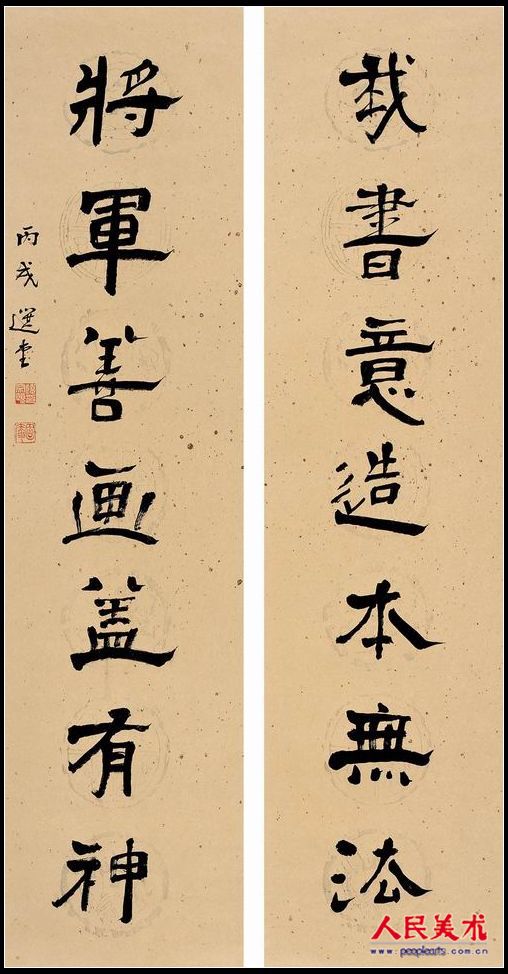 我書意造本無法
將軍善画蓋有神
丙戌 選堂
人民美术
www.peoplearts.com.cn